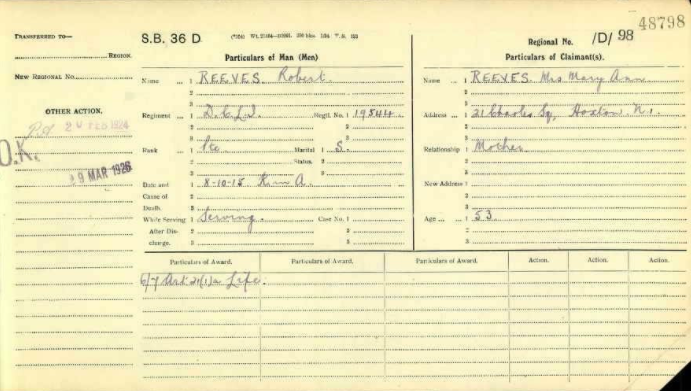 48798
TRANSFERRED TO—
S.B. 36 D
Regional No. /D/ 98
REGION.
Particulars of Man (Men)
Particulars of Claimant(s).
NEW REGIONAL No.
Name ... 1 REEVES Robert
2
3
Name ... 1 REEVES Mrs Mary Ann
2
3
OTHER ACTION.
24 FEB 1924
O.K.
29 MAR 1926
Regiment ... 1 D.C.L.I. Regtl. No. 1 19544
2 2
3 3
Address ... 1 21 Charles Sq, Hoxton N.1
2
3
Rank ... 1 Pte Marital 1 S.
2 Status. 2
3 3
Relationship 1 Mother
2
3
Date and 1 8-10-15 K in A.
Cause of 2
Death. 3
New Address 1
2
3
While Serving 1 Serving. Case No. 1
After Dis- 2 2
charge. 3 3
Age ... ... 1 53
2
3
Particulars of Award. Particulars of Award. Particulars of Award. Action. Action. Action.
6/7 Art 21(1)a Life.